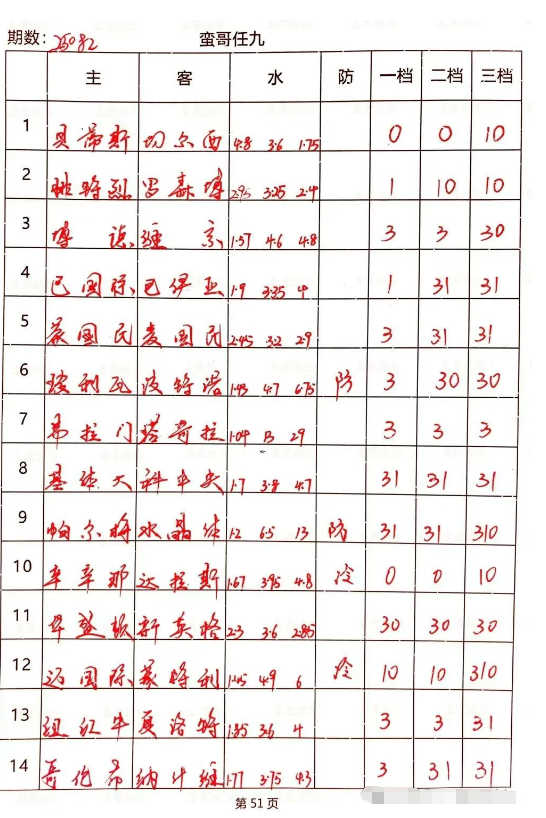 期数: 25082 蛮哥任九
主 客 水 防 一档 二档 三档
1 贝蒂斯 切尔西 4.8 3.6 1.75 0 0 10
2 耶特烈 罗森博 2.95 3.25 2.4 1 10 10
3 博德 缠京 1.57 4.6 4.8 3 3 30
4 巴国际 巴伊亚 1.9 3.35 4 1 31 31
5 蒙国民 麦国民 2.45 3.2 2.9 3 31 31
6 玻利瓦 波特诺 1.43 4.7 6.75 防 3 30 30
7 弗拉门 塔奇拉 1.04 13 29 3 3 3
8 基体大 科中央 1.7 3.8 4.7 31 31 31
9 帕尔梅 水晶体 1.2 6.5 13 防 31 31 310
10 辛辛那 达拉斯 1.67 3.95 4.8 冷 0 0 10
11 华盛顿 新英格 2.3 3.6 2.85 30 30 30
12 迈国际 蒙特利 1.45 4.9 6 冷 10 10 310
13 纽红牛 夏洛特 1.85 3.6 4 3 3 31
14 哥伦布 纳什维 1.77 3.75 4.3 3 31 31
第 51 页